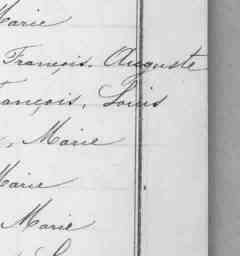 Marie
François, Auguste
François, Louis
, Marie
Marie
Marie